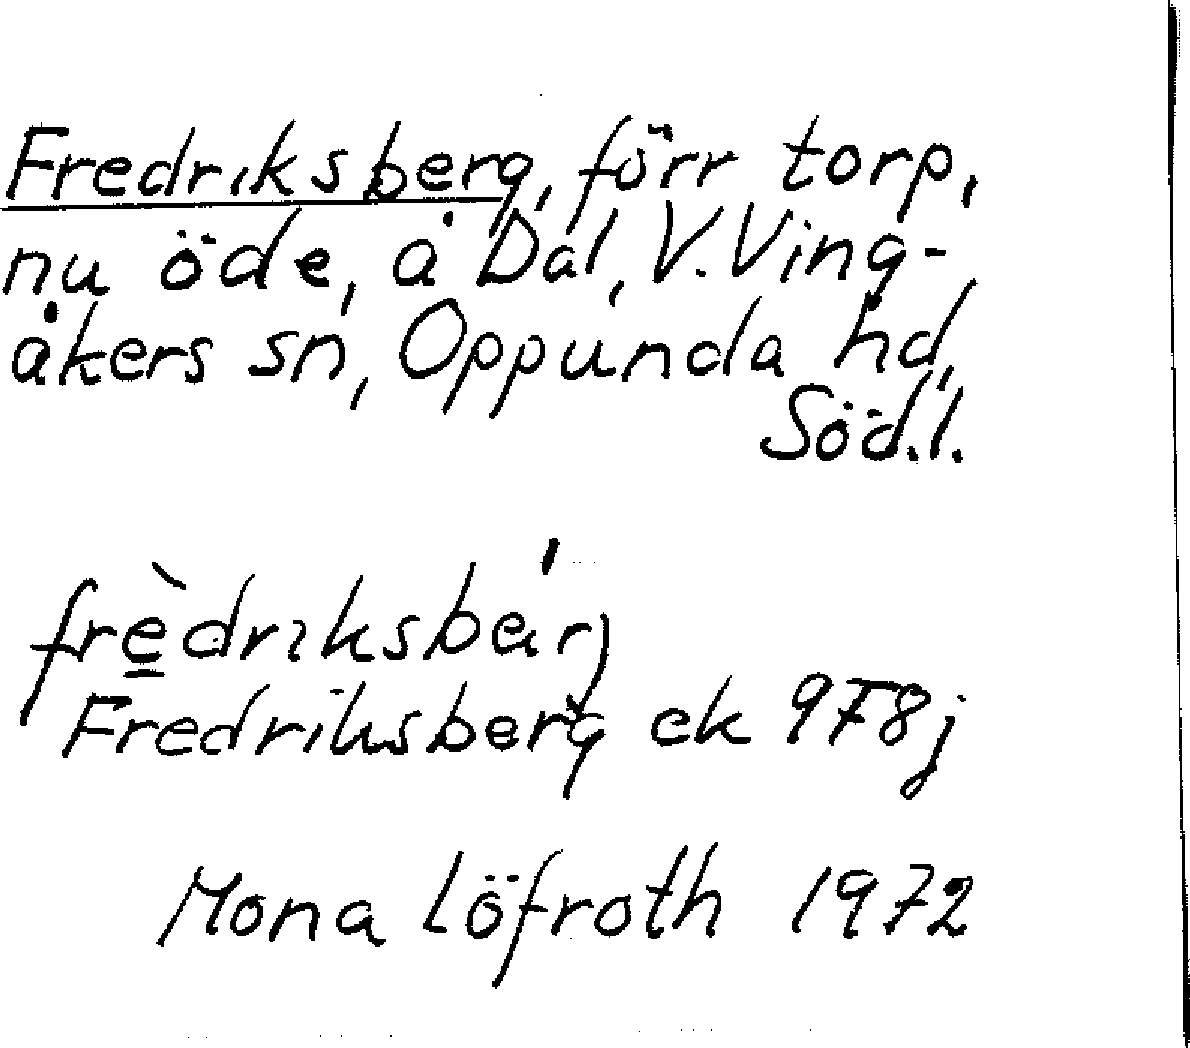 Fredriksberg, förr torp,
nu öde, å Dal, V. Ving-
åkers sn, Oppunda hd,
Söd.l.
frè̲drıksbär̀j
Fredriksberg ek 9F8j
Mona Löfroth 1972